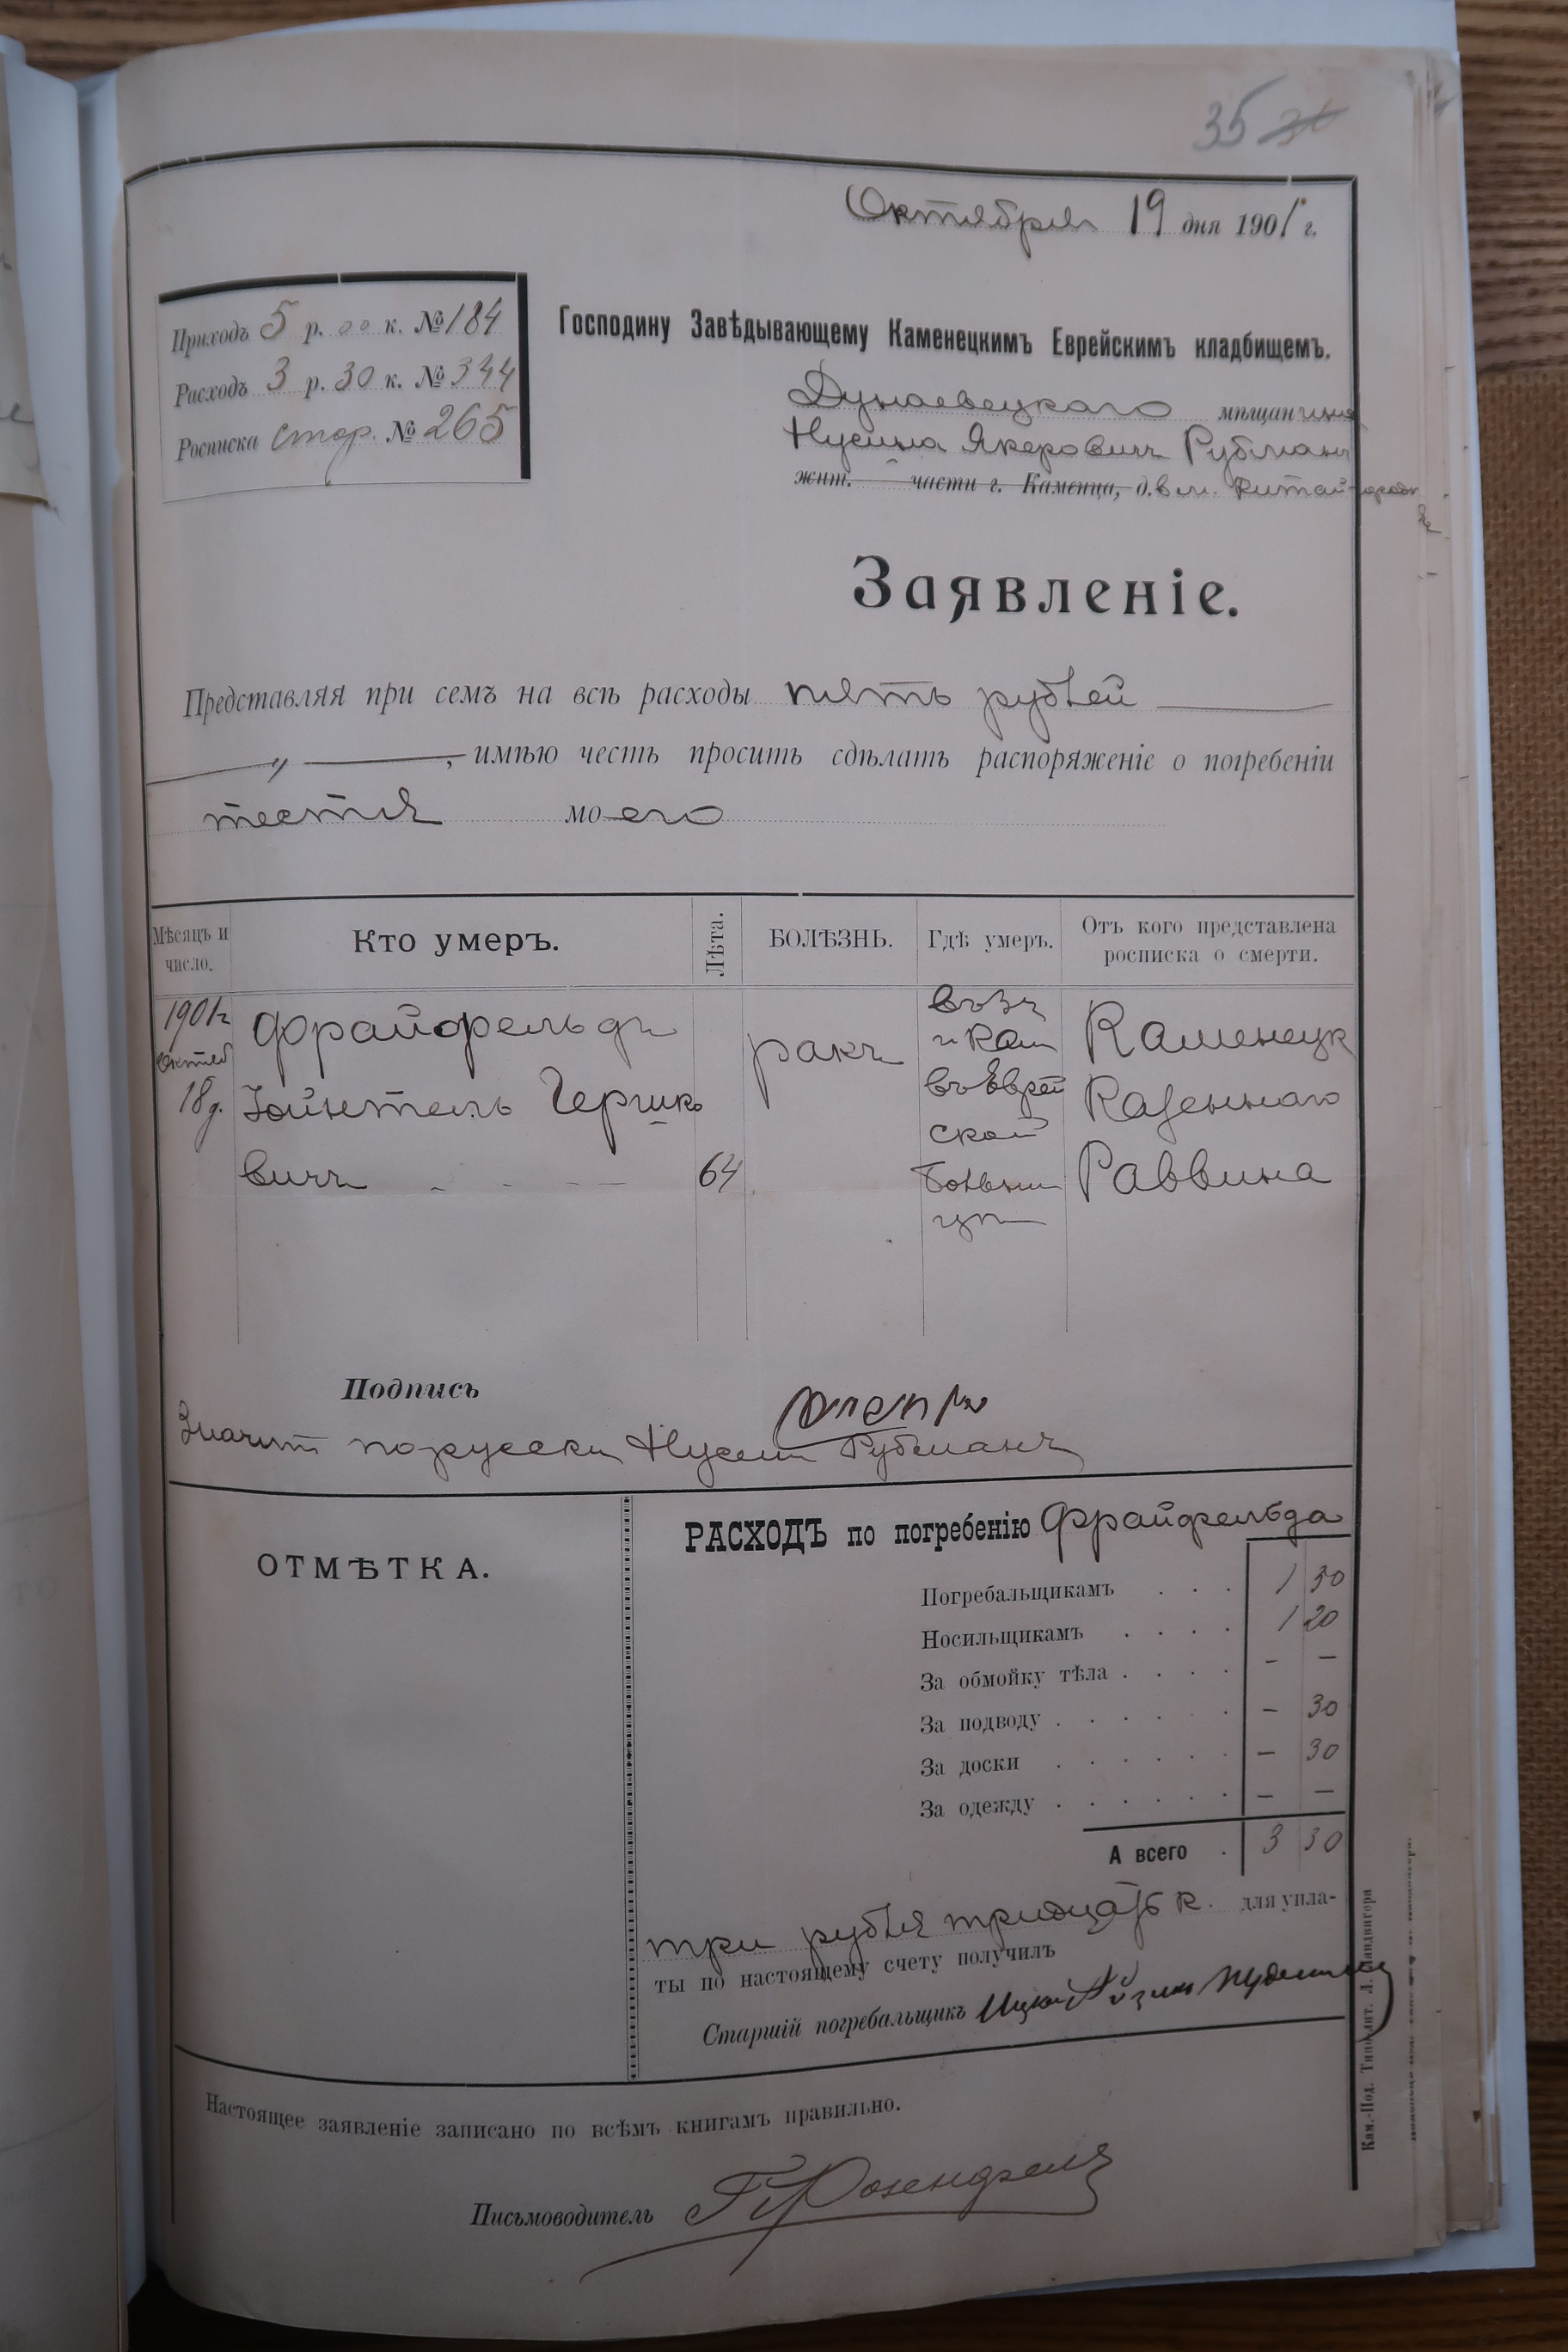 35 30
Октября 19 дня 1901 г.
Приходъ 5 р. 00 к. № 184
Расходъ 3 р. 30 к. № 344
Росписка стор. № 265
Господину Завѣдывающему Каменецкимъ Еврейскимъ кладбищемъ.
Дунаевецкаго мѣщанина
Нусина Рубман
жит. части г. Каменца, д. в м. Китай-город
Заявленіе.
Представляя при семъ на всѣ расходы пять рублей
„ , имѣю честь просить сдѣлать распоряженіе о погребеніи
тестя моего
Мѣсяцъ и число. Кто умеръ. Лѣта. БОЛѢЗНЬ. Гдѣ умеръ. Отъ кого представлена росписка о смерти.
1901 г. Октяб 18 д.
Фрайфельдъ
Гершко
вичъ 64
ракъ
г. Кам
въ Еврей
ской
Больни
цѣ
Каменецк
Казеннаго
Раввина
Подпись
Значит порусски Нусин Рубманъ
ОТМѢТКА.
РАСХОДЪ по погребенію Фрайфельда
Погребальщикамъ . . . 1 30
Носильщикамъ . . . . 1 20
За обмойку тѣла . . . . – –
За подводу . . . . . . – 30
За доски . . . . . – 30
За одежду . . . . . . – –
А всего . 3 30
три рубля тридцать к. для упла-
ты по настоящему счету получилъ
Старшій погребальщикъ
Настоящее заявленіе записано по всѣмъ книгамъ правильно.
Письмоводитель
Кам.-Под. Типо-лит. Л. Ландвигера